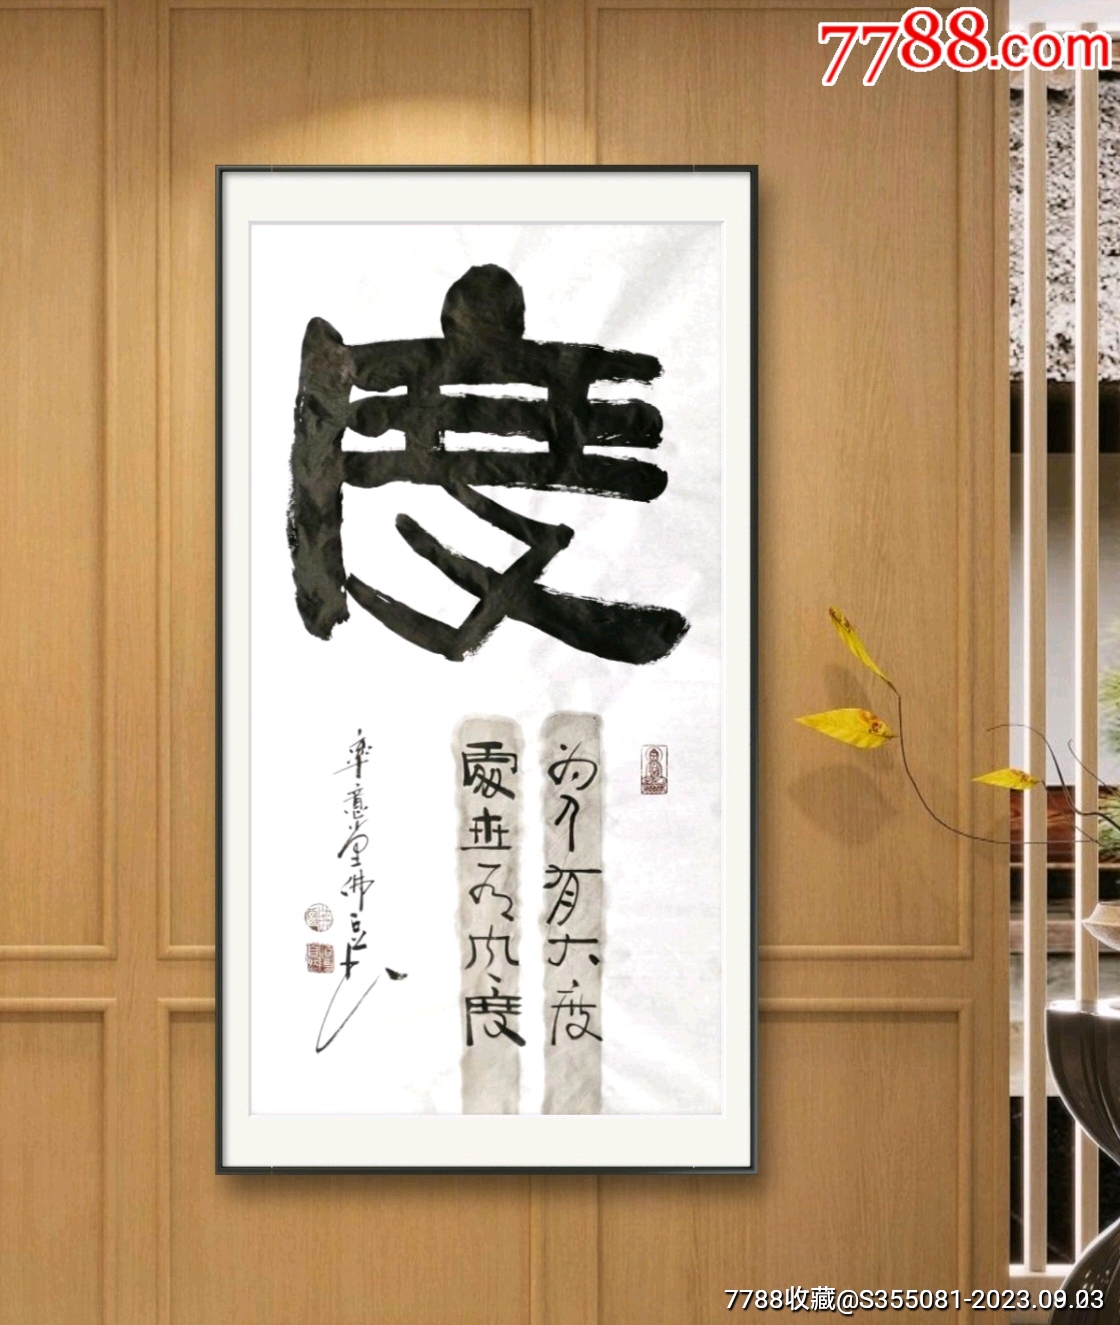 7788.com
度
为人有大度
處世有风度
率意堂佛
7788收藏@S355081-2023.09.03